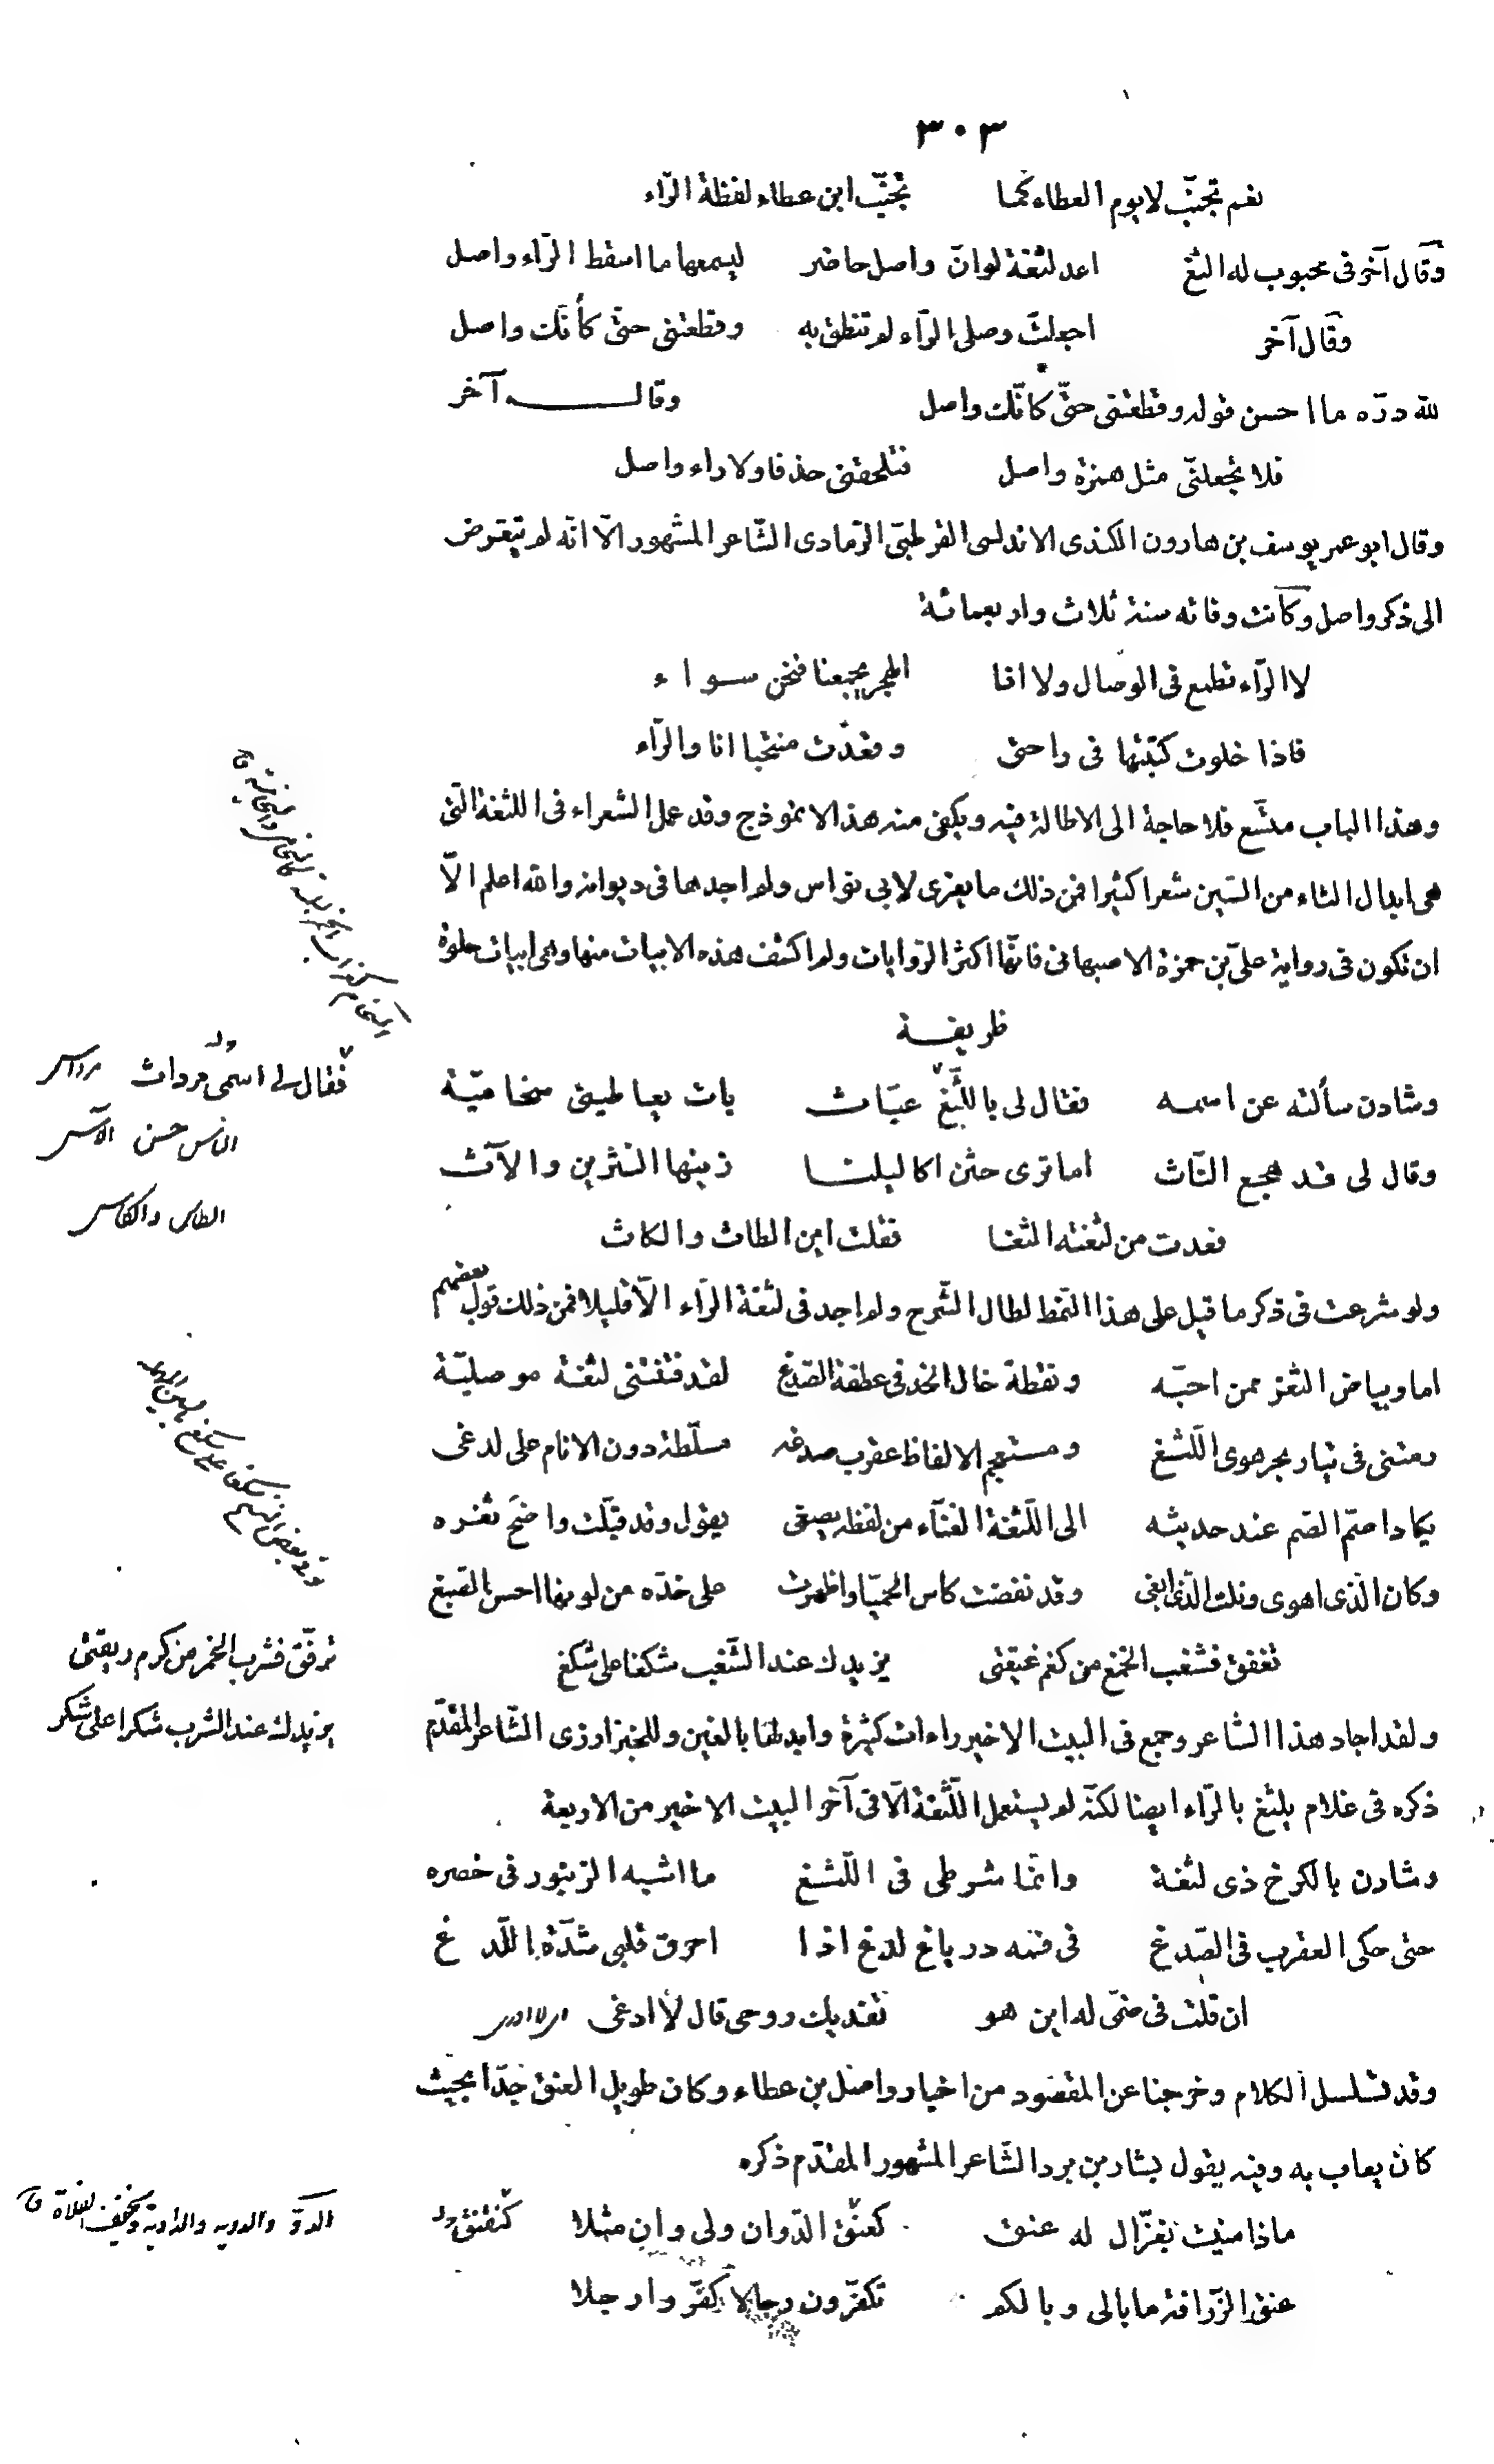 ٣٠٣
نعم تجنّب لا يوم العطاء كما تجنّب ابن عطاء لفظة الرّاء
وقال آخر فى محبوب له الثغ اعد لثغة لو انّ واصل حاضر ليسمعها ما اسقط الرّاء واصل
وقال آخر اجعلت وصلى الرّاء لم تنطق به وقطعتنى حتّى كأنّك واصل
لله درّه ما احسن قوله وقطعتنى حتّى كانّك واصل وقال آخر
فلا تجعلنّى مثل همزة واصل فتلحقنى حذفا ولا راء واصل
وقال ابو عمر يوسف بن هارون الكندى الاندلسى القرطبىّ الرّمادى الشّاعر المشهور الّا انّه لم يتعرض
الى ذكر واصل وكانت وفاته سنة ثلاث واربعمائة
لا الرّاء تطمع فى الوصال ولا انا الهجر يجمعنا فنحن سواء
فاذا خلوت كتبتها فى راحتى وقعدت منتحبا انا والرّاء
وهذا الباب متّسع فلا حاجة الى الاطالة فيه ويكفى منه هذا الانموذج وقد عمل الشعراء فى اللثغة التى
هى ابدال الثاء من السّين شعرا كثيرا فمن ذلك ما يعزى لابى نواس ولم اجدها فى ديوانه والله اعلم الّا
ان تكون فى رواية علىّ بن حمزة الاصبهانى فانّها اكثر الرّوايات ولم اكشف هذه الابيات منها وهى ابيات حلوة
ظريفة
وشادن سألته عن اسمه فقال لى باللّثغ عبّاث بات يعاطينى سخاميّة
وقال لى قد هجع النّاث اما ترى حثن اكاليلنا زينها النثرين والآث
فعدت من لثغته الثغا فقلت اين الطاث والكاث
فقال لى اسمى مرداث مرداس
الناس حسن الآس
الطاس والكاس
ولو شرعت فى ذكر ما قيل على هذا النّمط لطال الشّرح ولم اجد فى لثغة الرّاء الّا قليلا فمن ذلك قول بعضهم
اما وبياض الثغر ممن احبّه ونقطة خال الخد فى عطفة الصّدغ لقد فتنتنى لثغة موصليّة
رمتنى فى تيار بحر هوى اللّثغ ومستعجم الالفاظ عقرب صدغه مسلّطة دون الانام على لدغى
يكاد اصمّ الصّم عند حديثه الى اللّثغة الغنّاء من لفظه يصغى يقول وقد قبّلت واضح ثغره
وكان الّذى اهوى ونلت الّذى ابغى وقد نفضت كاس الحميّا واظهرت على خدّه من لونها احسن الصّبغ
تغفق فشغب الخمغ من كغم غيقتى يزيدك عند الشّغب شكغا على شكغ
ترفّق فشرب الخمر من كرم ريقتى
يزيدك عند الشرب شكرا على شكر
ولقد اجاد هذا الشاعر وجمع فى البيت الاخير راءات كثيرة وابدلها بالغين وللخبزارزى الشّاعر المقدّم
ذكره فى غلام يلثغ بالرّاء ايضا لكنّه لم يستعمل اللّثغة الّا فى آخر البيت الاخير من الاربعة
وشادن بالكرخ ذى لثغة وانّما شرطى فى اللّثغ ما اشبه الزنبور فى خصره
حتى حكى العقرب فى الصّدغ فى فمه درياغ لدغ اذا احرق قلبى شدّة اللّدغ
ان قلت فى ضمّى له اين هو تفديك روحى قال لا ادغى
وقد تسلسل الكلام وخرجنا عن المقصود من اخبار واصل بن عطاء وكان طويل العنق جدّا بحيث
كان يعاب به وفيه يقول بشار بن برد الشّاعر المشهور المقدّم ذكره
ماذا منيت بغزّال له عنق كعنق الدّوان ولى وان مثلا كنقنق
الدوّ والدوية والداوية
عنق الزّرافة ما بالى وبالكم تكفّرون رجالا كفّروا رجلا